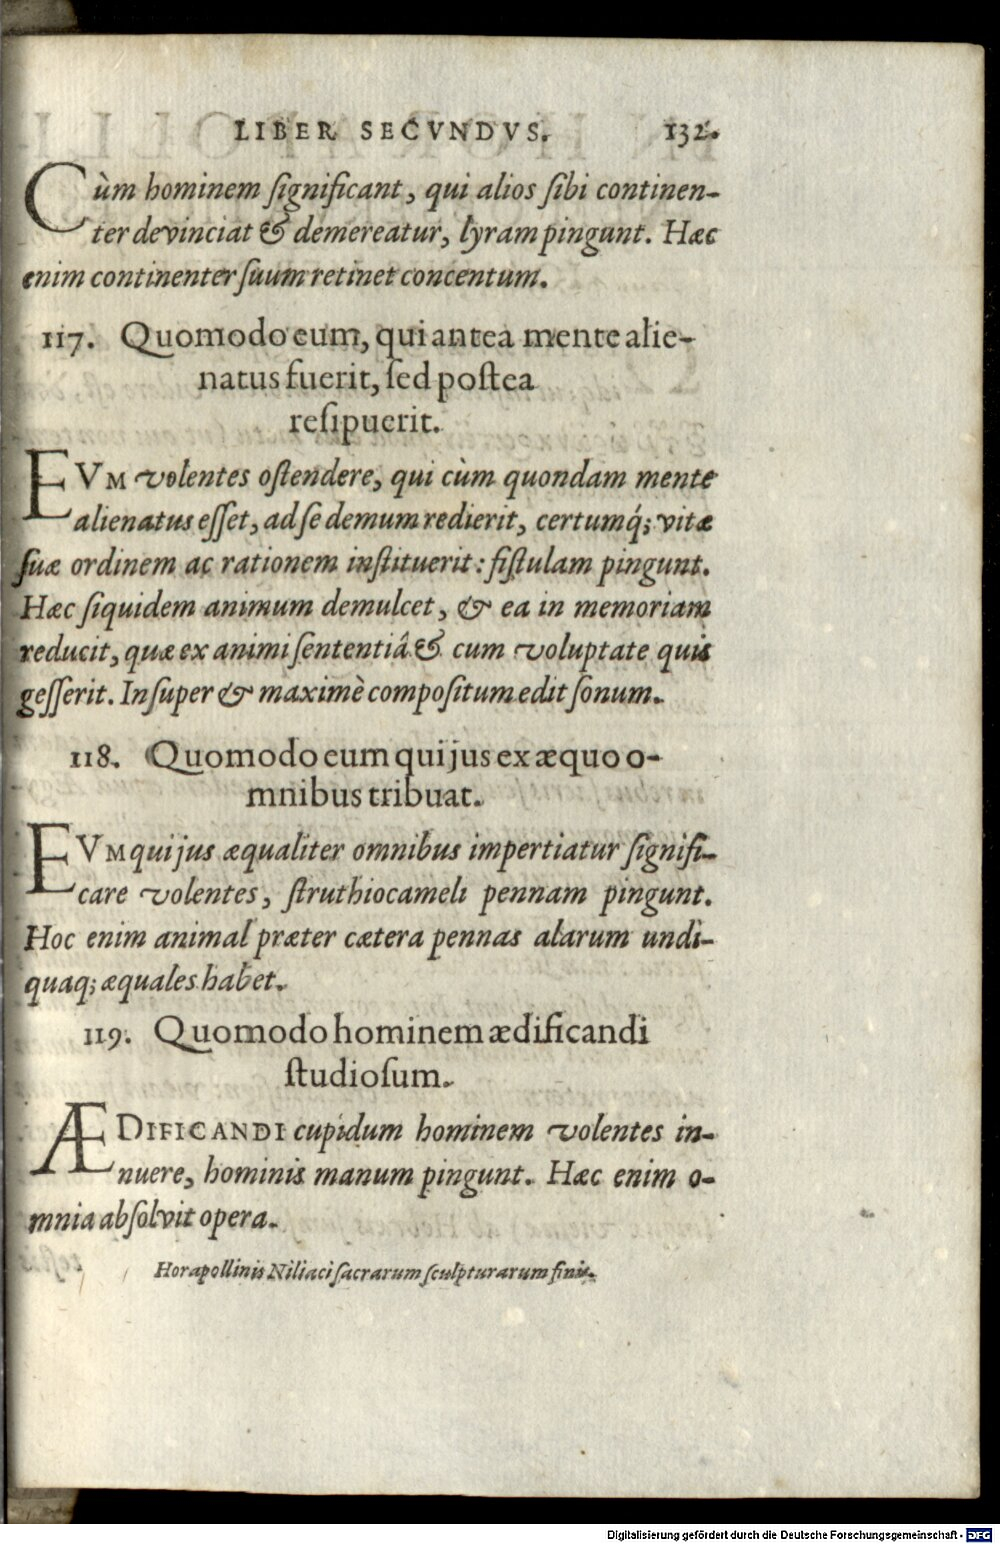 LIBER SECVNDVS. 132.
Cùm hominem ſignificant, qui alios ſibi continen-
ter devinciat & demereatur, lyram pingunt. Hæc
enim continenter ſuum retinet concentum.
117. Quomodo eum, qui antea mente alie-
natus fuerit, ſed poſtea
reſipuerit.
EVM volentes oſtendere, qui cùm quondam mente
alienatus eſſet, ad ſe demum redierit, certumq́; vitæ
ſuæ ordinem ac rationem inſtituerit: fiſtulam pingunt.
Hæc ſiquidem animum demulcet, & ea in memoriam
reducit, quæ ex animi ſententiâ & cum voluptate quis
geſſerit. Inſuper & maximè compoſitum edit ſonum.
118. Quomodo eum qui jus ex æquo o-
mnibus tribuat.
EVM qui jus æqualiter omnibus impertiatur ſignifi-
care volentes, ſtruthiocameli pennam pingunt.
Hoc enim animal præter cætera pennas alarum undi-
quaq; æquales habet.
119. Quomodo hominem ædificandi
ſtudioſum.
ÆDIFICANDI cupidum hominem volentes in-
nuere, hominis manum pingunt. Hæc enim o-
mnia abſolvit opera.
Horapollinis Niliaci ſacrarum ſculpturarum finis.
Digitalisierung gefördert durch die Deutsche Forschungsgemeinschaft - DFG